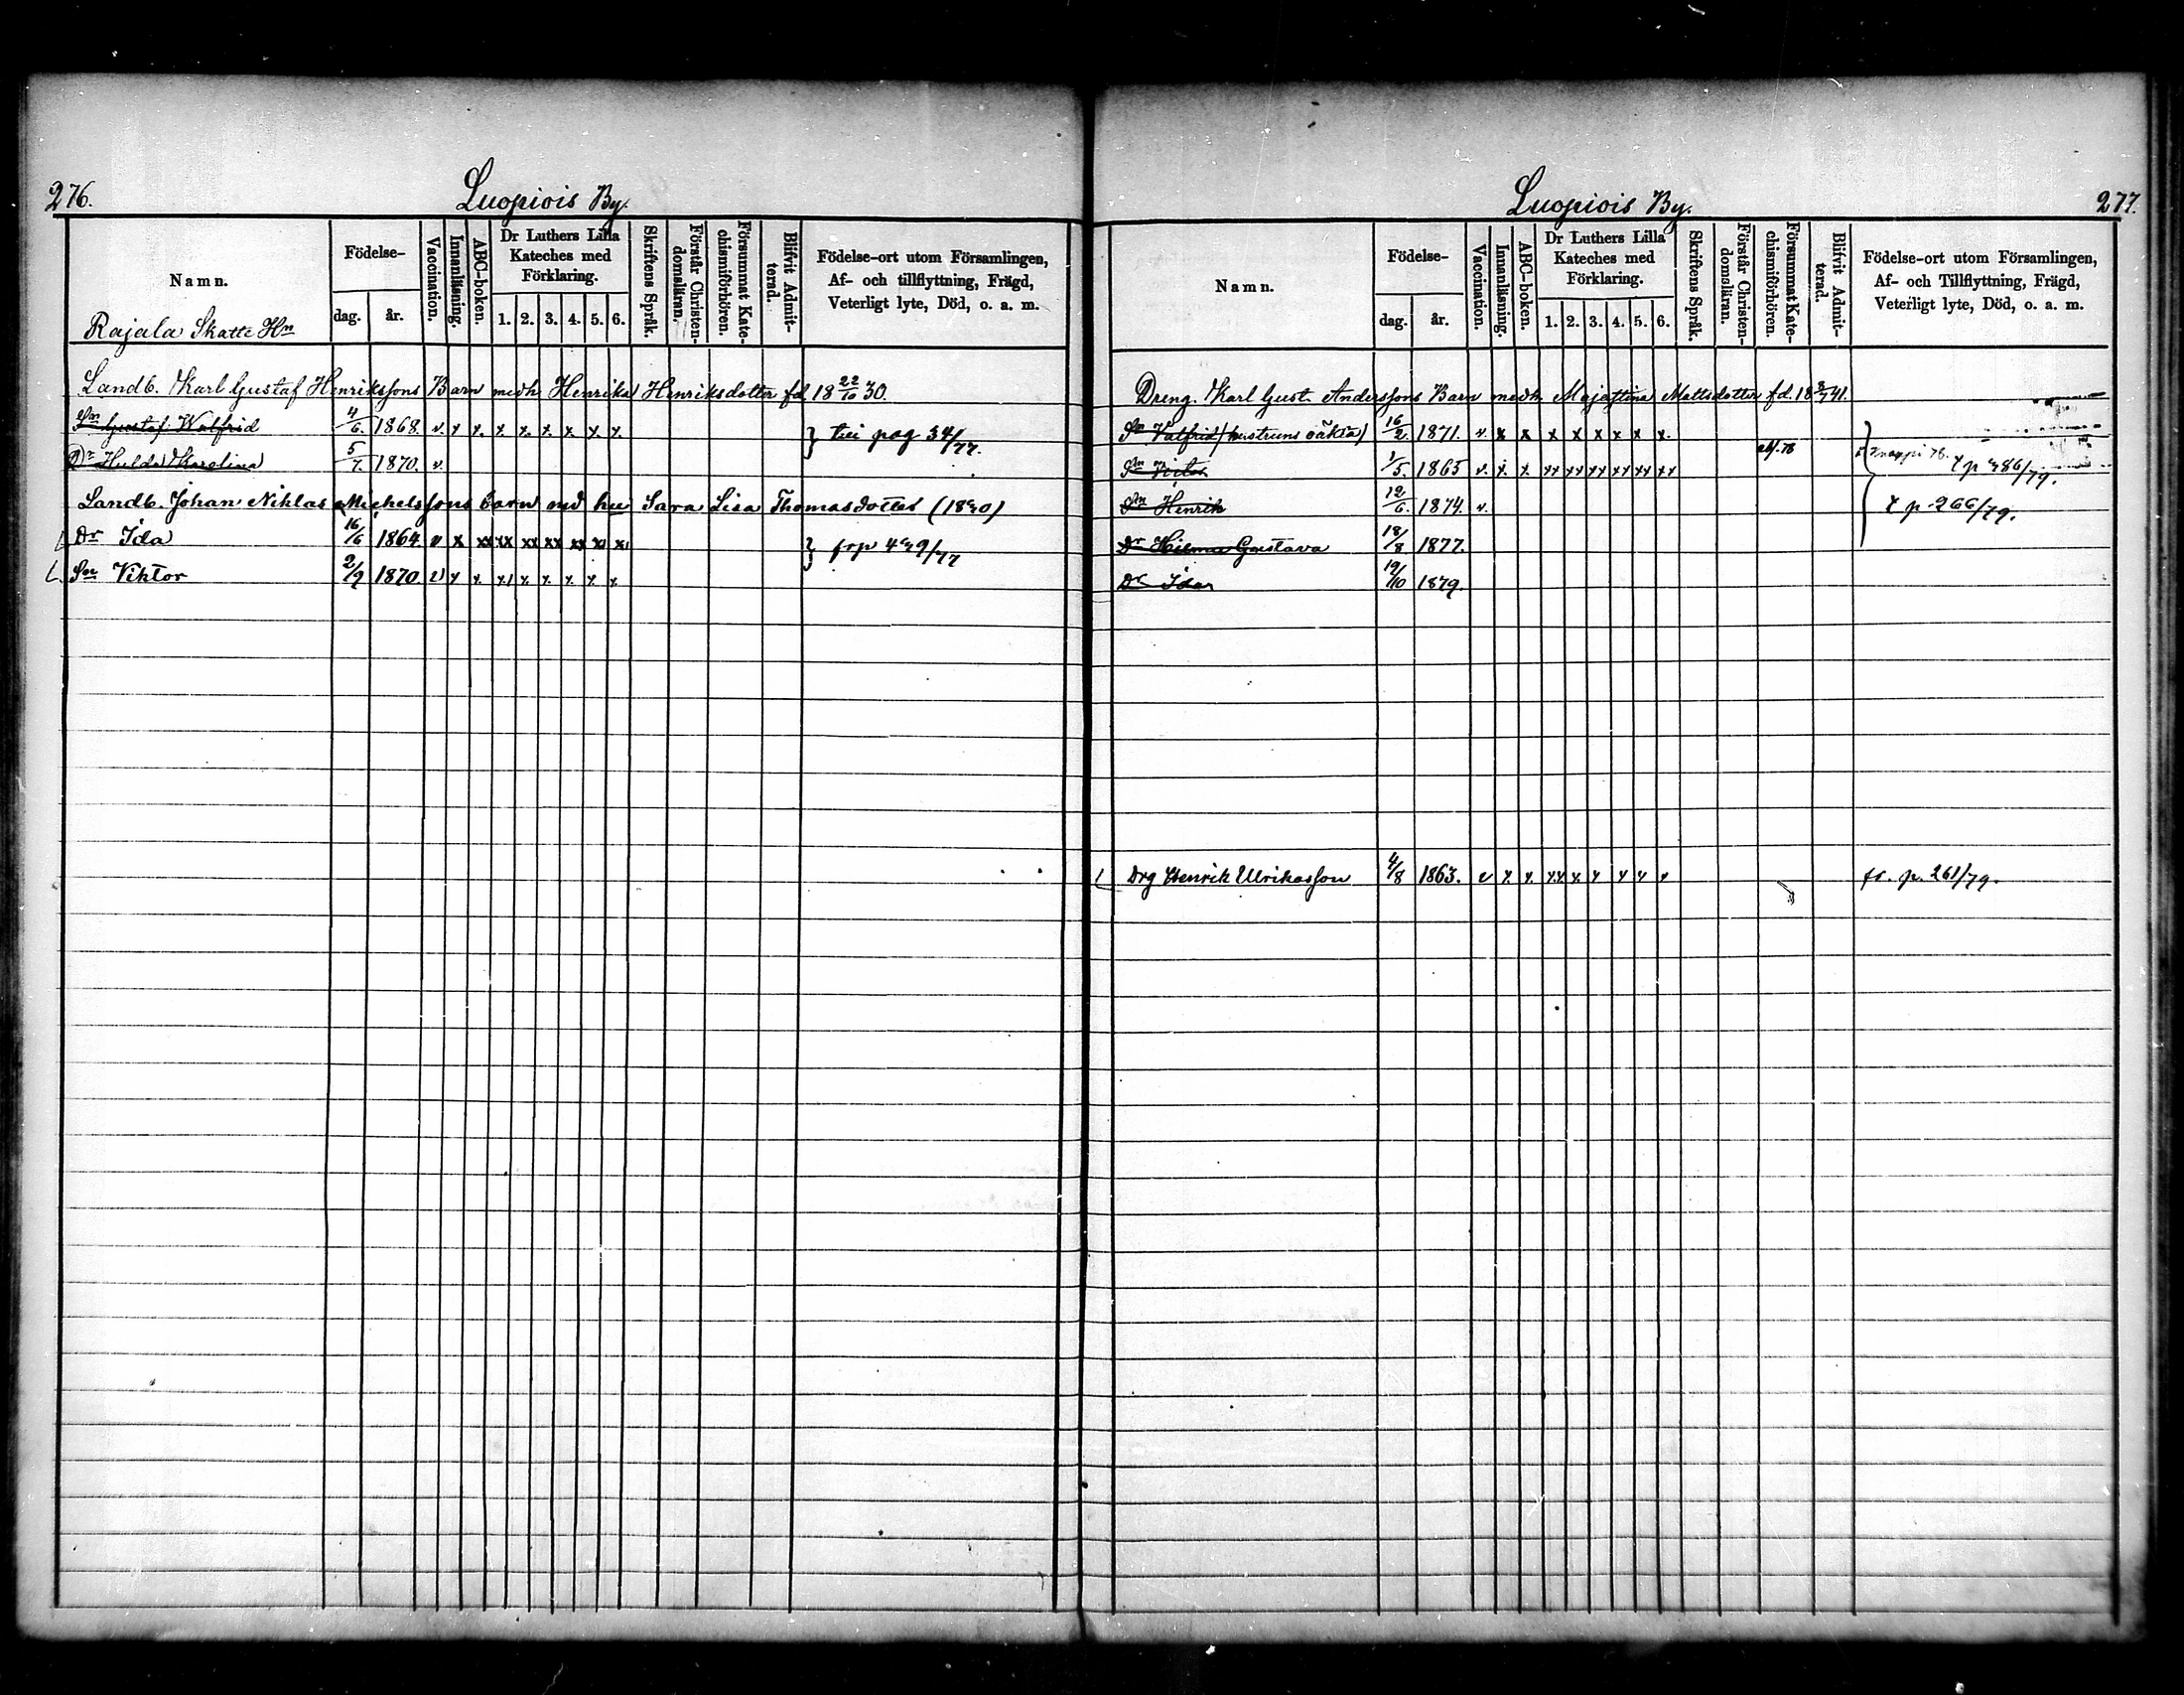 276.
Luopiois By.
Namn.
Födelse-
dag.
år.
Vaccination.
Innanläsning.
ABC-boken.
Dr Luthers Lilla Kateches med Förklaring.
1. 2. 3. 4. 5. 6.
Skriftens Språk.
Förstår Christen-domsläran.
Försummat Kate-chismiförhören.
Blifvit Admit-terad.
Födelse-ort utom Församlingen, Af- och tillflyttning, Frägd, Veterligt lyte, Död, o. a. m.
Rajala Skatte Hn
Landb. Karl Gustaf Henrikssons Barn medh Henrika Henriksdotter fd 18 22/10 30.
Sn Gustaf Walfrid 4/6. 1868. v. x x. x. x. x. x. x. x. } till pag 34/77.
Dr Hulda Karolina 5/7. 1870. v.
Landb. Johan Niklas Michelssons barn md hu Sara Lisa Thomasdotter (1840)
Dr Ida 16/6 1864 v x xx xx xx xx xx x x } frp 449/77
Sn Viktor 2/9 1870 v x x. x x. x. x. x. x.
277.
Luopiois By.
Namn.
Födelse-
dag.
år.
Vaccination.
Innanläsning.
ABC-boken.
Dr Luthers Lilla Kateches med Förklaring.
1. 2. 3. 4. 5. 6.
Skriftens Språk.
Förstår Christen-domsläran.
Försummat Kate-chismiförhören.
Blifvit Admit-terad.
Födelse-ort utom Församlingen, Af- och Tillflyttning, Frägd, Veterligt lyte, Död, o. a. m.
Dreng. Karl Gust. Anderssons Barn medh Majastina Mattsdotter fd. 18 3/7 41.
Sn Valfrid (hustruns oäkta) 16/2. 1871. v. x x x x x x x x.
Sn Victor 1/5. 1865 v. x. x. xx xx xx xx xx xx 78. t p 486/79.
Sn Henrik 12/6. 1874. v. t p 266/79.
Dr Hilma Gustava 18/8 1877.
Dr Ida 19/10 1879.
Drg Henrik Ulrikasson 4/8 1863. v x. x. xx x. x x x x fr. p. 261/79.